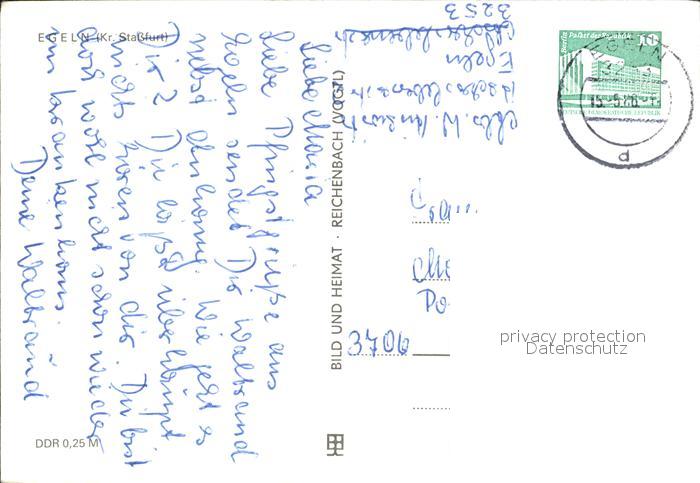 EGELN (Kr. Staßfurt)
Liebe Maria
Liebe Pfingstgrüße aus
Egeln sendet Dir Waltraud
nebst Anhang. Wie geht es
Dir? Du läßt überhaupt
nichts hören von dir. Du bist
doch wohl nicht schon wieder
im Krankenhaus.
Deine Waltraud
DDR 0,25 M
BILD UND HEIMAT · REICHENBACH (VOGTL)
Abs. W.
Egeln
3253
Berlin Palast der Republik
10
DEUTSCHE DEMOKRATISCHE REPUBLIK
EGELN
d
3706
privacy protection
Datenschutz